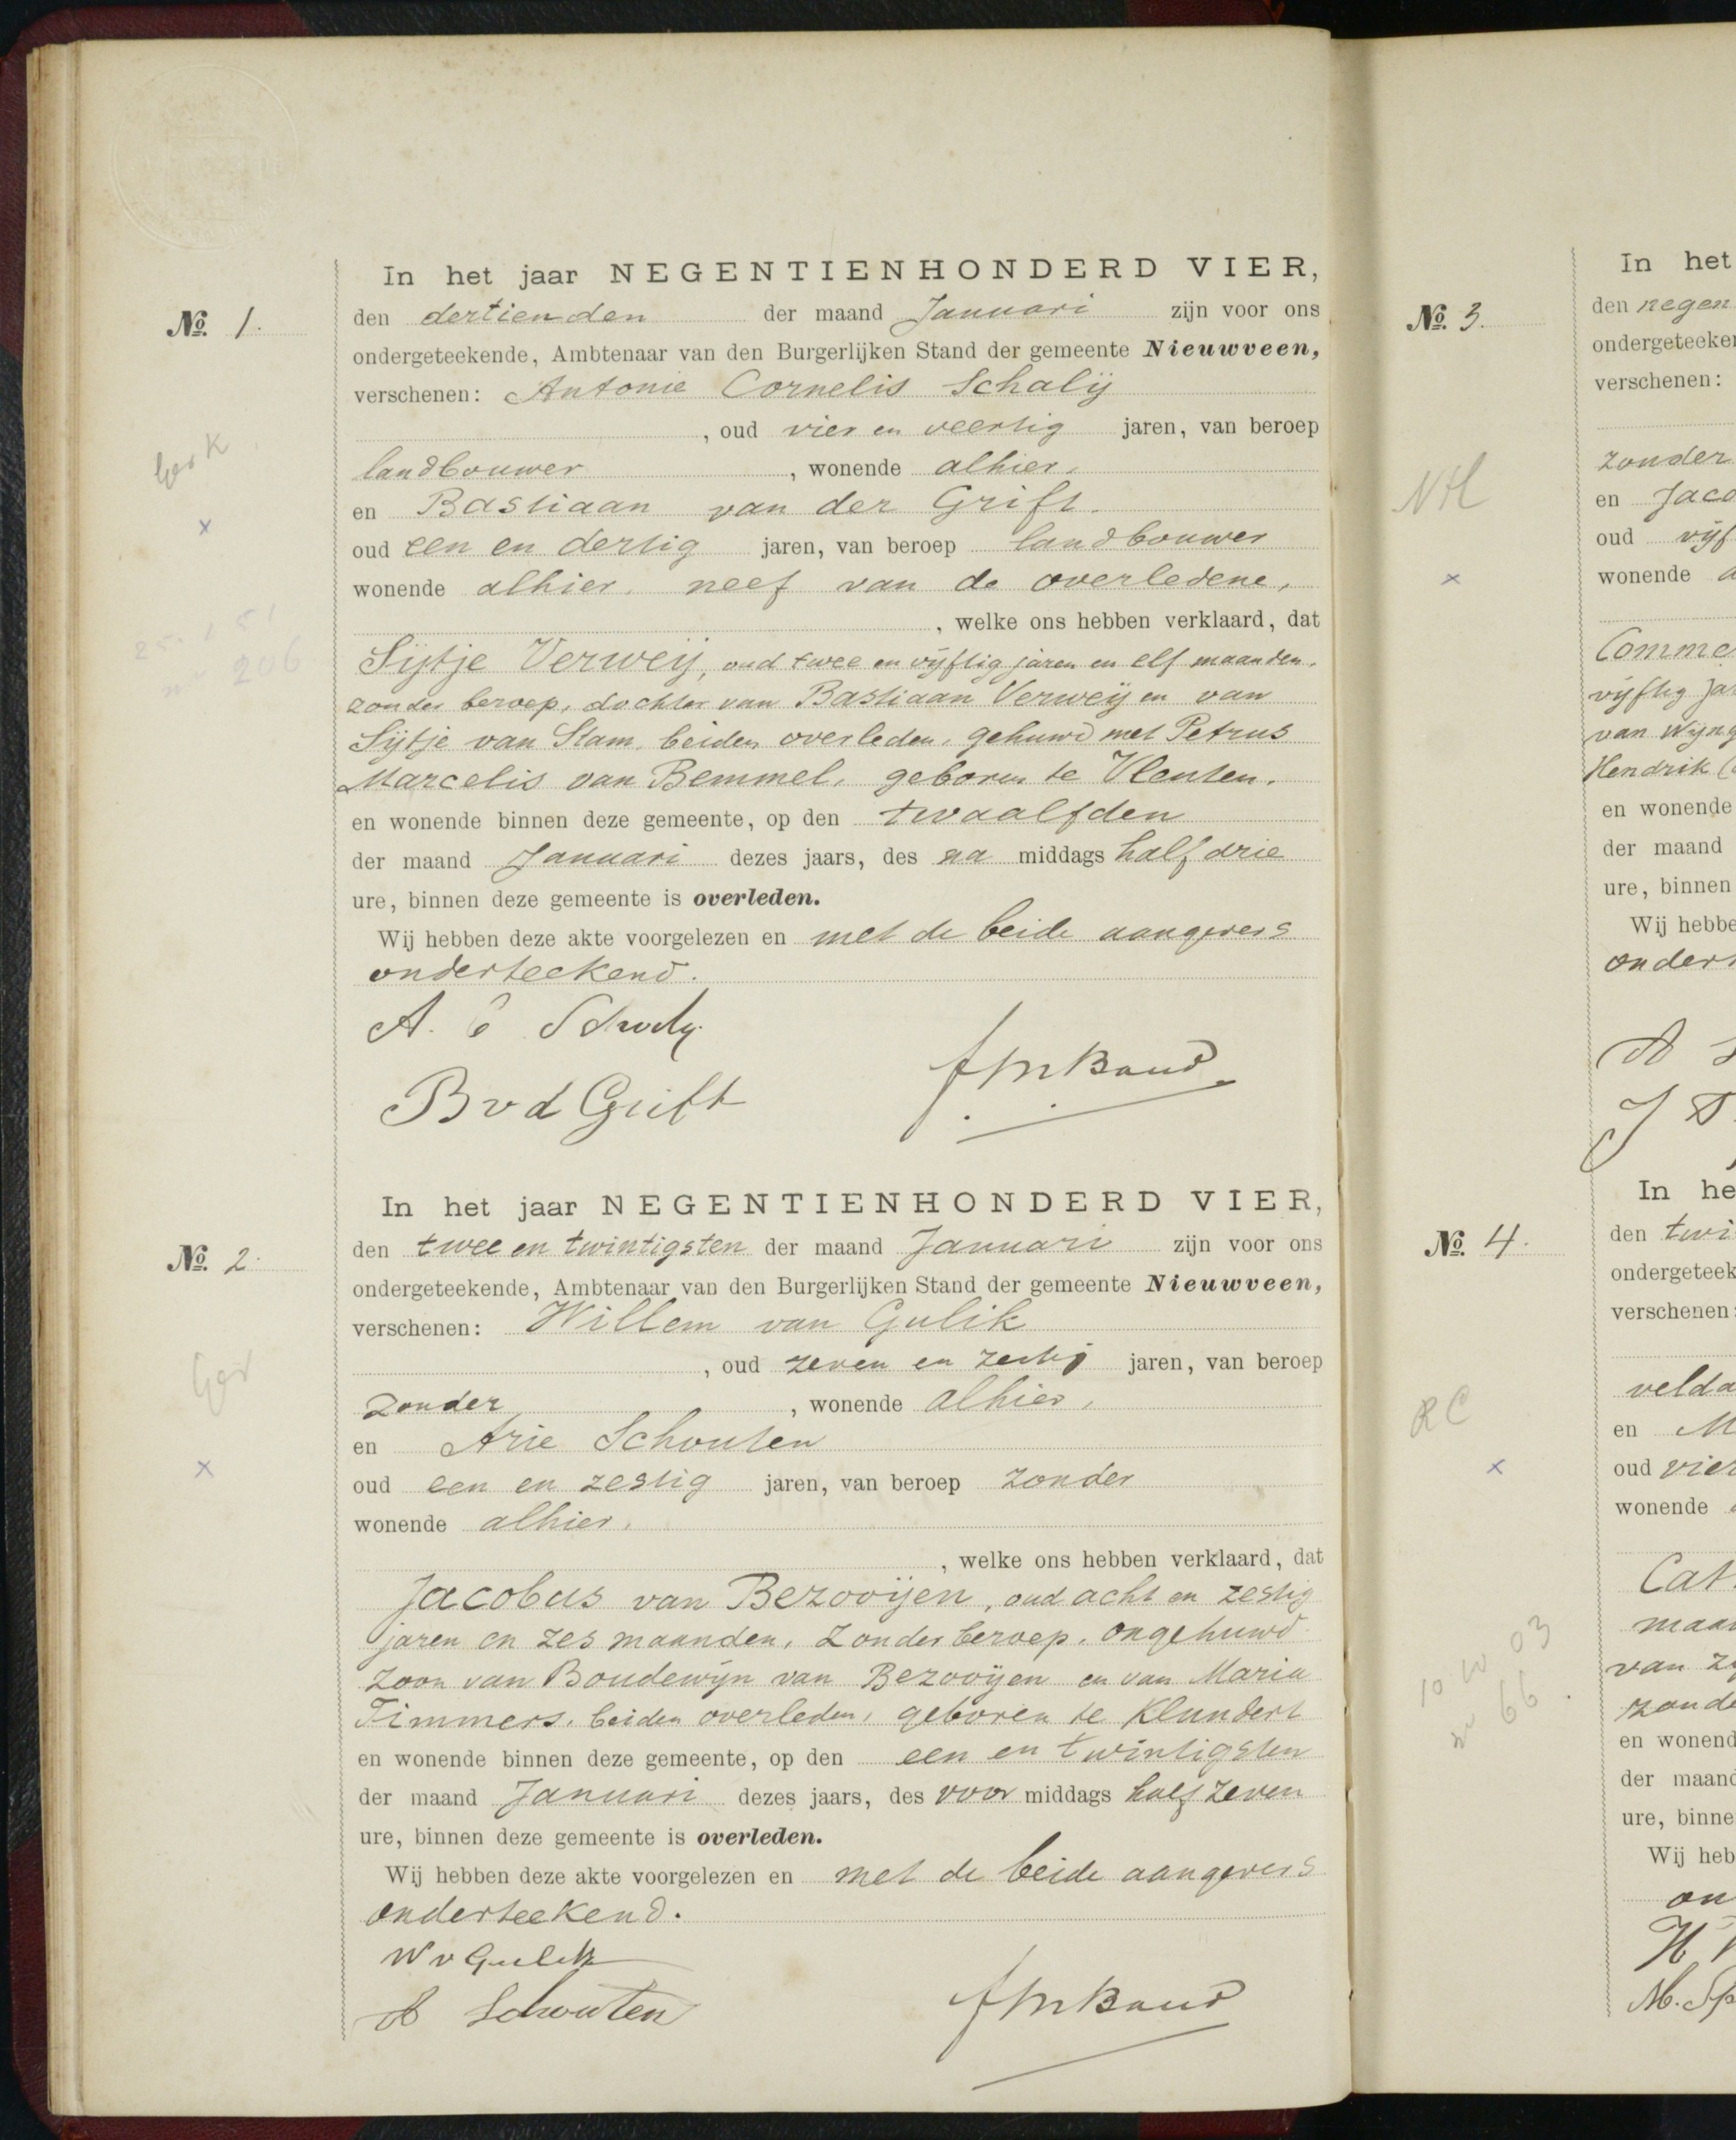 In het jaar NEGENTIENHONDERD VIER,
No. 1.
den dertienden der maand Januari zijn voor ons
ondergeteekende, Ambtenaar van den Burgerlijken Stand der gemeente Nieuwveen,
verschenen: Antonie Cornelis Schalij
, oud vier en veertig jaren, van beroep
landbouwer, wonende alhier.
en Bastiaan van der Grift.
oud een en dertig jaren, van beroep landbouwer
wonende alhier. neef van de overledene,
, welke ons hebben verklaard, dat
Sijtje Verweij, oud twee en vijftig jaren en elf maanden.
zonder beroep, dochter van Bastiaan Verweij en van
Sijtje van Stam, beiden overleden, gehuwd met Petrus
Marcelis van Bemmel, geboren te Vleuten.
en wonende binnen deze gemeente, op den twaalfden
der maand Januari dezes jaars, des na middags half drie
ure, binnen deze gemeente is overleden.
Wij hebben deze akte voorgelezen en met de beide aangevers
onderteekend.
A. C Schaly.
B v d Grift
206
In het jaar NEGENTIENHONDERD VIER,
No. 2.
den twee en twintigsten der maand Januari zijn voor ons
ondergeteekende, Ambtenaar van den Burgerlijken Stand der gemeente Nieuwveen,
verschenen: Willem van Gulik
, oud zeven en zestig jaren, van beroep
zonder, wonende alhier,
en Arie Schouten
oud een en zestig jaren, van beroep zonder
wonende alhier.
, welke ons hebben verklaard, dat
Jacobus van Bezooijen, oud acht en zestig
jaren en zes maanden, zonder beroep, ongehuwd
zoon van Boudewijn van Bezooijen en van Maria
Timmers, beiden overleden, geboren te Klundert
en wonende binnen deze gemeente, op den een en twintigsten
der maand Januari dezes jaars, des voor middags half zeven
ure, binnen deze gemeente is overleden.
Wij hebben deze akte voorgelezen en met de beide aangevers
onderteekend.
W v Gulik
A Schouten
In het
No. 3.
den negen
ondergeteeken
verschenen:
zonder
en Jaco
NH
oud vijf
wonende a
Comme
vijftig ja
van Wijng
Hendrik
en wonende
der maand
ure, binnen
Wij hebbe
ondert
In he
den twi
No. 4.
ondergeteek
verschenen:
velda
RC
en M
oud vier
wonende
Cat
maan
van
zonde
en wonend
der maand
ure, binne
Wij heb
on
10 W 03
66